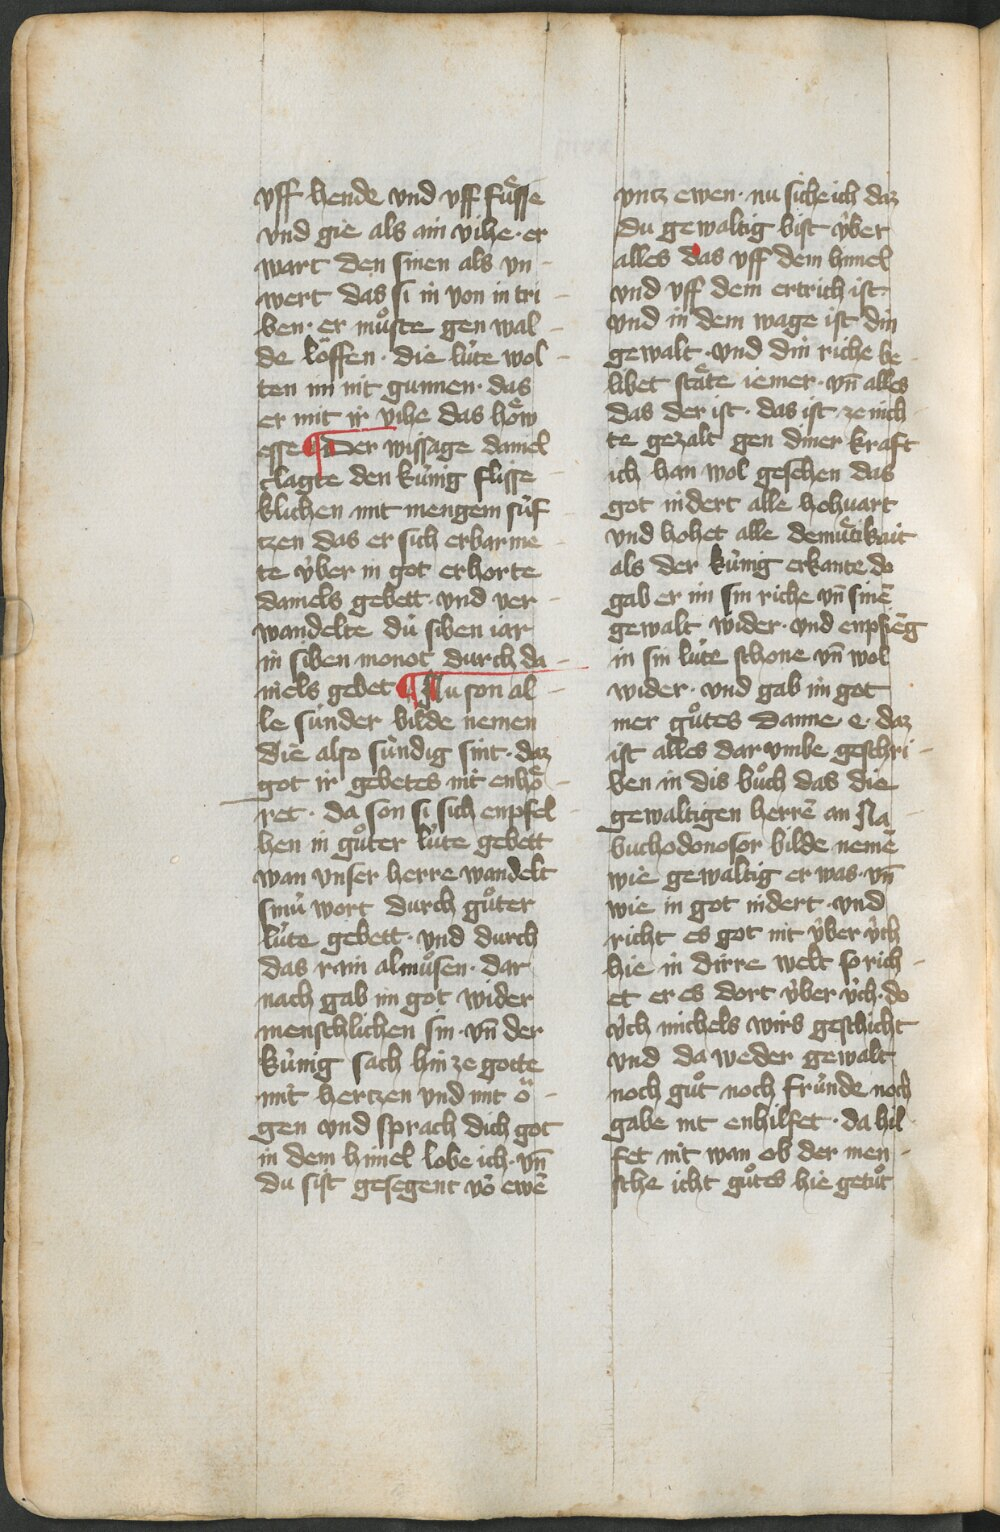 vff hende vnd vff fuͤsse
vnd gie als ain vihe · er
wart den sinen als vn
wert das si in von in tri
ben · er muͦste gen wal
de loͤffen · die luͤte wol
ten im nit gunnen · das
er mit ir vihe das hoͤw
esse ¶ Der wissage daniel
clagte den kuͤnig flisse
klichen mit mengem suͤf
tzen das er sich erbarme
te vͤber in got erhorte
daniels gebett · vnd ver
wandelte duͤ siben iar
in siben monot durch da
niels gebet ¶ Nu son al
le suͤnder bilde nemen
die also suͤndig sint · daz
got ir gebetes nit enhoͤ
ret · da son si sich enpfel
hen in guͦter luͤte gebett
wan vnser herre wandelt
sinuͤ wort durch guͦter
luͤte gebett · vnd durch
das rain almuͦsen · dar
nach gab im got wider
menschlichen sin · vn̄ der
kuͤnig sach hin ze gotte
mit hertzen vnd mit oͤ
gen vnd sprach dich got
in dem himel lobe ich · vn̄
du sist gesegent vō ewē
vntz ewen · nu siche ich daz
du gewaltig bist vͤber
alles das vff dem himel
vnd vff dem ertrich ist ·
vnd in dem wage ist din
gewalt · vnd din riche be
libet staͤte iemer · vn̄ alles
das der ist · das ist ze nich
te gezalt gen diner kraft
ich han wol gesehen das
got nidert alle hohuart
vnd hohet alle demuͤtikait
als der kuͤnig erkante do
gab er im sin riche vn̄ sinē
gewalt wider · vnd enpfieng
in sin luͤte schone vn̄ wol
wider · vnd gab im got
mer guͦtes danne · e · daz
ist alles dar vmbe geschri
ben in dis buͦch das die
gewaltigen herrē an Na
buchodonosor bilde nemē
wie gewaltig er was · vn̄
wie in got nidert · vnd
richt es got nit vͤber vͤch
hie in dirre welt so rich
et er es dort vͤber vͤch · do
vͤch michels wirs geschicht
vnd da weder gewalt
noch guͦt noch fruͤnde noch
gabe nit enhilfet · da hil
fet nit wan ob der men
sche icht guͦtes hie getuͦt